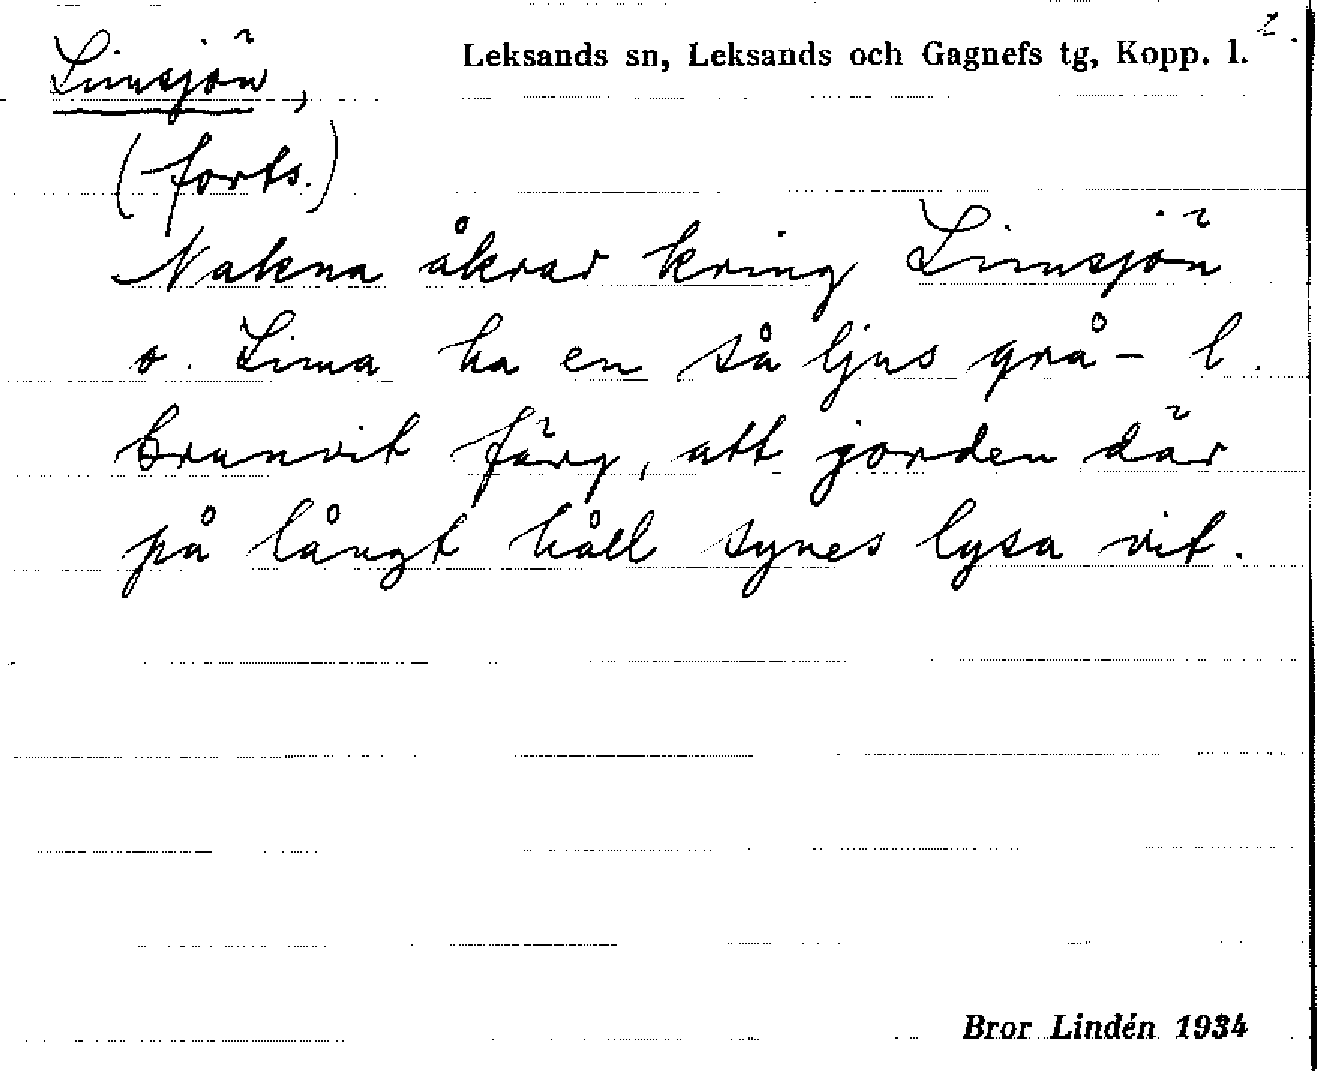 2.
Leksands sn, Leksands och Gagnefs tg, Kopp. l.
Limsjön,
(forts.)
Nakna åkrar kring Limsjön
o. Lima ha en så ljus grå- l.
brunvit färg, att jorden där
på långt håll synes lysa vit.
Bror Lindén 1934